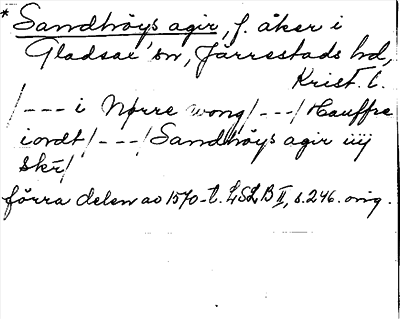 * Sandhöys agir, f. åker i
Gladsax sn, Järrestads hd,
Krist. l.
/--- i Nørre wong/---/Hauffre
iordt/---/Sandhöys agir iiij
skr/
förra delen av 1570-t. LSLB II, s. 246. orig.